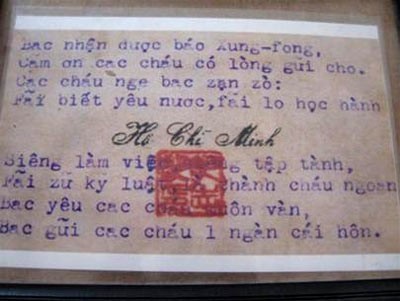 Bac nhận được báo Xung-fong,
Cảm ơn các cháu có lòng gửi cho.
Các cháu nge bac zạn zò:
Fải biết yêu nước, fải lo học hành
Hồ Chí Minh
Siêng làm việc, tệp tành,
Fải zữ kỷ luật, thành cháu ngoan
Bac yêu các muôn vàn,
Bac gửi các cháu 1 ngàn cái hôn.